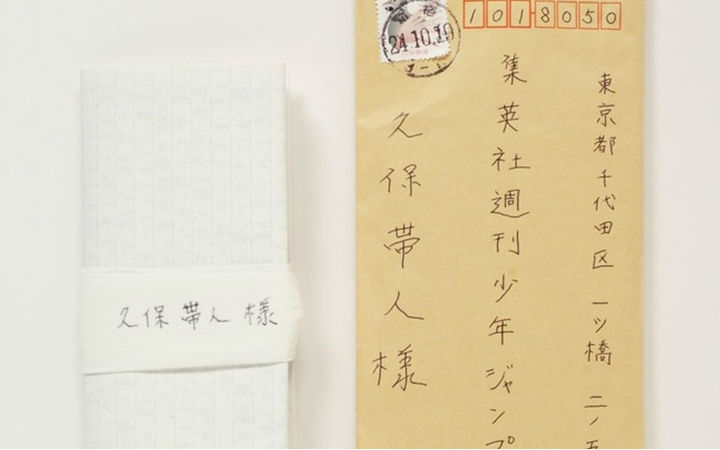 1018050
24.10.10
東京都千代田区一ツ橋二ノ五
集英社週刊少年ジャンプ
久保帯人様
久保帯人様